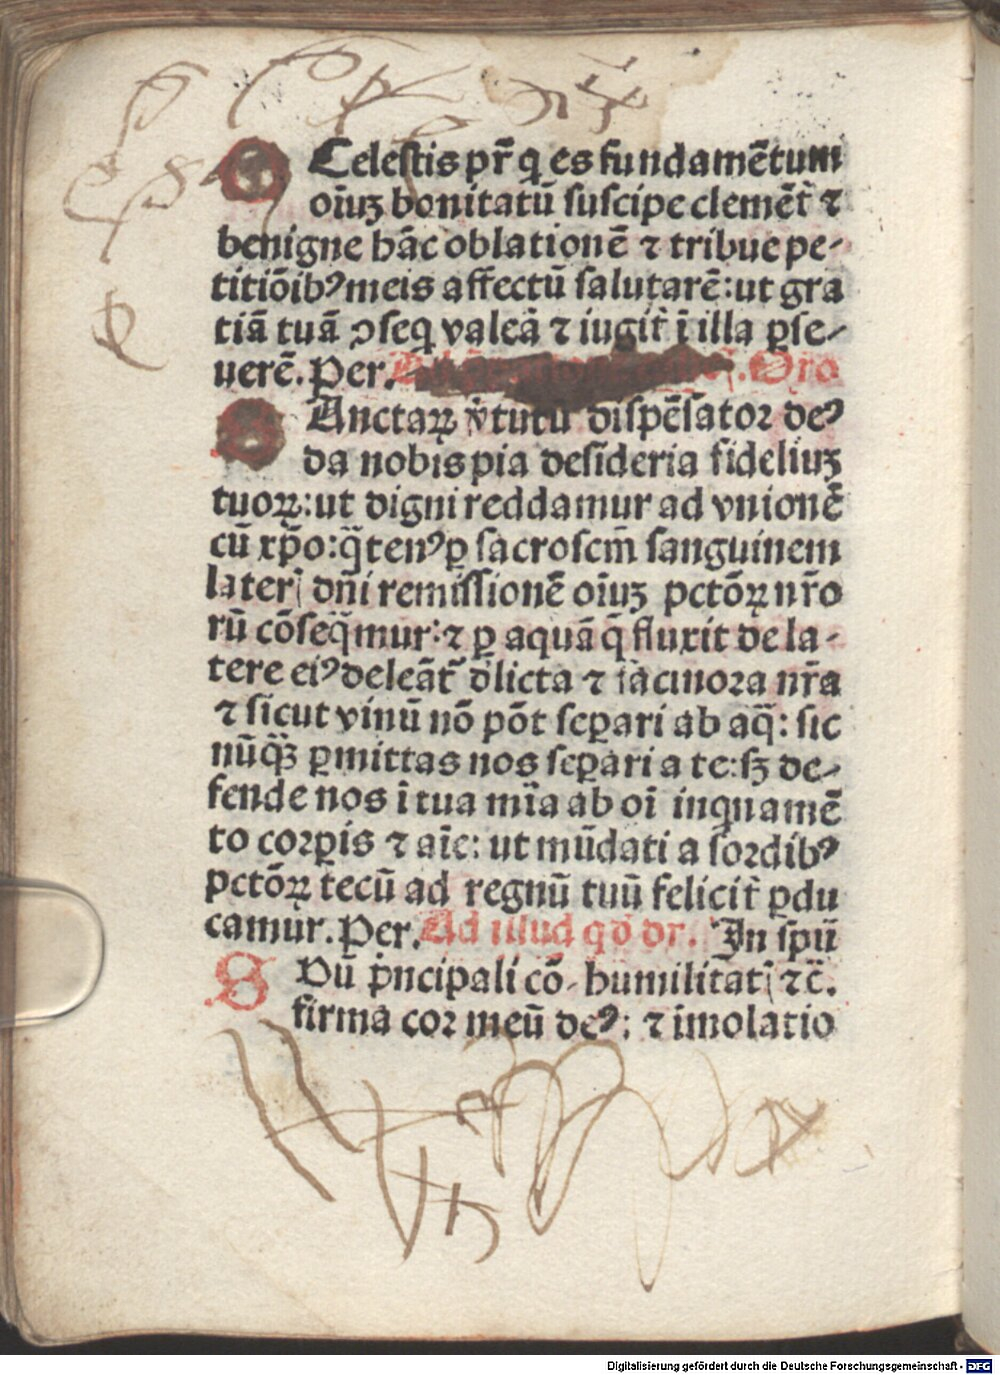 O Celestis pr̃ q̃ es fundamẽtum
oĩuʒ bonitatũ suscipe clemẽt̃ ⁊
benigne hãc oblationẽ ⁊ tribue pe-
titiõibꝰ meis affectũ salutarẽ: ut gra
tiã tuã ꝯseq̃ valeã ⁊ iugit̃ ĩ illa ꝑse-
uerẽ. Per. Oro
S Anctaꝝ v̾tutũ dispẽsator deꝰ
da nobis pia desideria fideliuʒ
tuoꝝ: ut digni reddamur ad vnionẽ
cũ xp̃o: q̃tenꝰ ꝑ sacroscm̃ sanguinem
laterꝭ dñi remissionẽ oĩuʒ pctõꝝ nr̃o
rũ cõseq̃mur: ⁊ ꝑ aquã q̃ fluxit de la-
tere eiꝰ deleãt̃ d̾licta ⁊ facinora nr̃a
⁊ sicut vinũ nõ põt seꝑari ab aq̃: sic
nũq̃ꝫ ꝑmittas nos seꝑari a te: sꝫ de-
fende nos ĩ tua mĩa ab oĩ inquamẽ
to corꝑis ⁊ aĩe: ut mũdati a sordibꝰ
pctõꝝ tecũ ad regnũ tuũ felicit̃ ꝑdu
camur. Per. Ad illud qð dr̃. In spũ
S Pũ p̃ncipali cõ- humilitatꝭ ⁊c̃.
firma cor meũ deꝰ: ⁊ imolatio
Digitalisierung gefördert durch die Deutsche Forschungsgemeinschaft - DFG